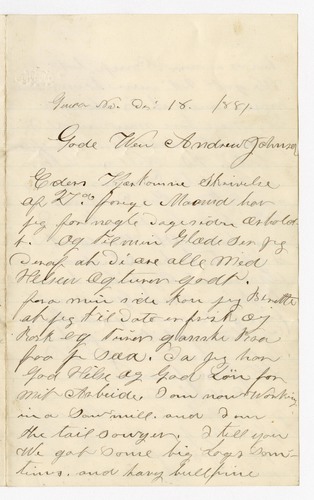 Dec 18. 1881.
Gode Wen Andrew Johnson
Eders Kjærkomne Skrivelse
af 27de forrige Maaned har
jeg for nogle Dage siden erhold-
t. og til min Glæde ser jeg
deraf at Di ere alle Med
Helsen og lever godt.
fora min side kan jeg Berette
at jeg til Dato er frisk og
Rask og
paa Ja jeg har
God Helse og God Lön for
mit Arbeide, I am now Working
in a Sawmill. and I am
the tail sawyer, I tell you
We got some big Logs som-
tims. and havy bull pine